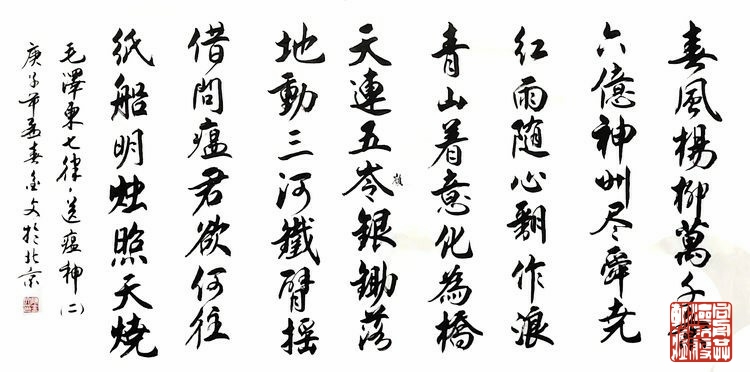 春風楊柳萬千條
六億神州尽舜尧
红雨随心翻作浪
青山着意化為橋
天連五岺銀鋤落
嶺
地動三河鐵臂摇
借問瘟君欲何往
紙船明烛照天燒
毛澤東七律·送瘟神(二)
庚子年孟春金文於北京